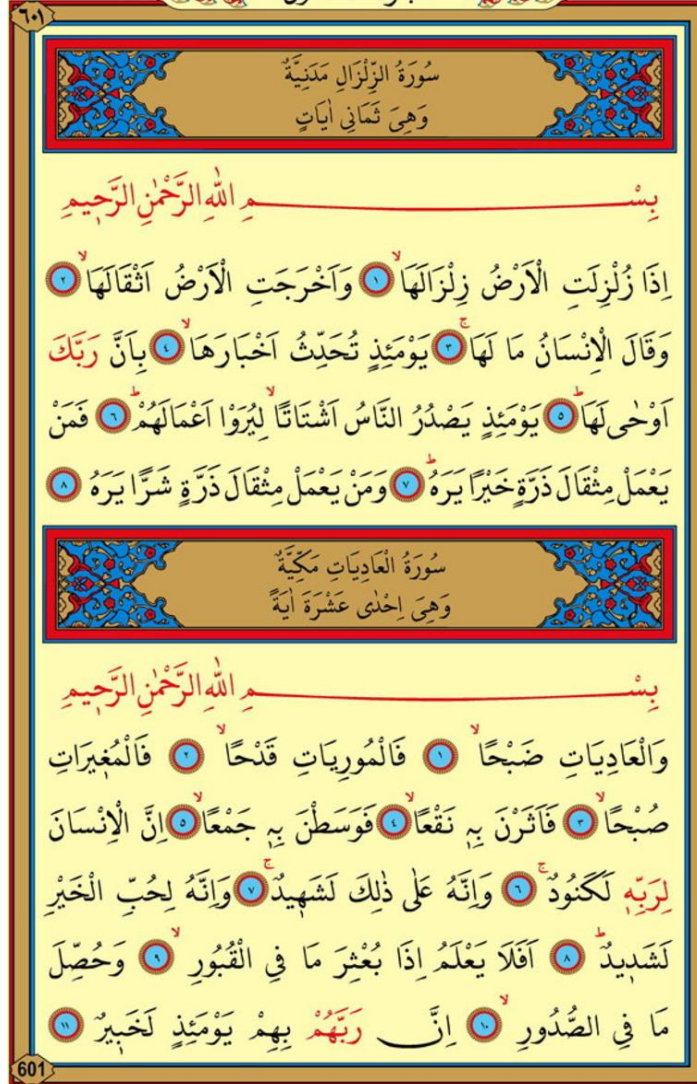 ٦٠١
سُورَةُ الزِّلْزَالِ مَدَنِيَّةٌ
وَهِىَ ثَمَانِى اٰيَاتٍ
بِسْمِ اللّٰهِ الرَّحْمٰنِ الرَّح۪يمِ
اِذَا زُلْزِلَتِ الْاَرْضُ زِلْزَالَهَاۙ ﴿١﴾ وَاَخْرَجَتِ الْاَرْضُ اَثْقَالَهَاۙ ﴿٢﴾
وَقَالَ الْاِنْسَانُ مَا لَهَاۚ ﴿٣﴾ يَوْمَئِذٍ تُحَدِّثُ اَخْبَارَهَاۙ ﴿٤﴾ بِاَنَّ رَبَّكَ
اَوْحٰى لَهَاۜ ﴿٥﴾ يَوْمَئِذٍ يَصْدُرُ النَّاسُ اَشْتَاتًاۙ لِيُرَوْا اَعْمَالَهُمْۜ ﴿٦﴾ فَمَنْ
يَعْمَلْ مِثْقَالَ ذَرَّةٍ خَيْرًا يَرَهُۜ ﴿٧﴾ وَمَنْ يَعْمَلْ مِثْقَالَ ذَرَّةٍ شَرًّا يَرَهُ ﴿٨﴾
سُورَةُ الْعَادِيَاتِ مَكِّيَّةٌ
وَهِىَ اِحْدٰى عَشْرَةَ اٰيَةً
بِسْمِ اللّٰهِ الرَّحْمٰنِ الرَّح۪يمِ
وَالْعَادِيَاتِ ضَبْحًاۙ ﴿١﴾ فَالْمُورِيَاتِ قَدْحًاۙ ﴿٢﴾ فَالْمُغ۪يرَاتِ
صُبْحًاۙ ﴿٣﴾ فَاَثَرْنَ بِه۪ نَقْعًاۙ ﴿٤﴾ فَوَسَطْنَ بِه۪ جَمْعًاۙ ﴿٥﴾ اِنَّ الْاِنْسَانَ
لِرَبِّه۪ لَكَنُودٌۚ ﴿٦﴾ وَاِنَّهُ عَلٰى ذٰلِكَ لَشَه۪يدٌۚ ﴿٧﴾ وَاِنَّهُ لِحُبِّ الْخَيْرِ
لَشَد۪يدٌۜ ﴿٨﴾ اَفَلَا يَعْلَمُ اِذَا بُعْثِرَ مَا فِى الْقُبُورِۙ ﴿٩﴾ وَحُصِّلَ
مَا فِى الصُّدُورِۙ ﴿١٠﴾ اِنَّ رَبَّهُمْ بِهِمْ يَوْمَئِذٍ لَخَب۪يرٌ ﴿١١﴾
601